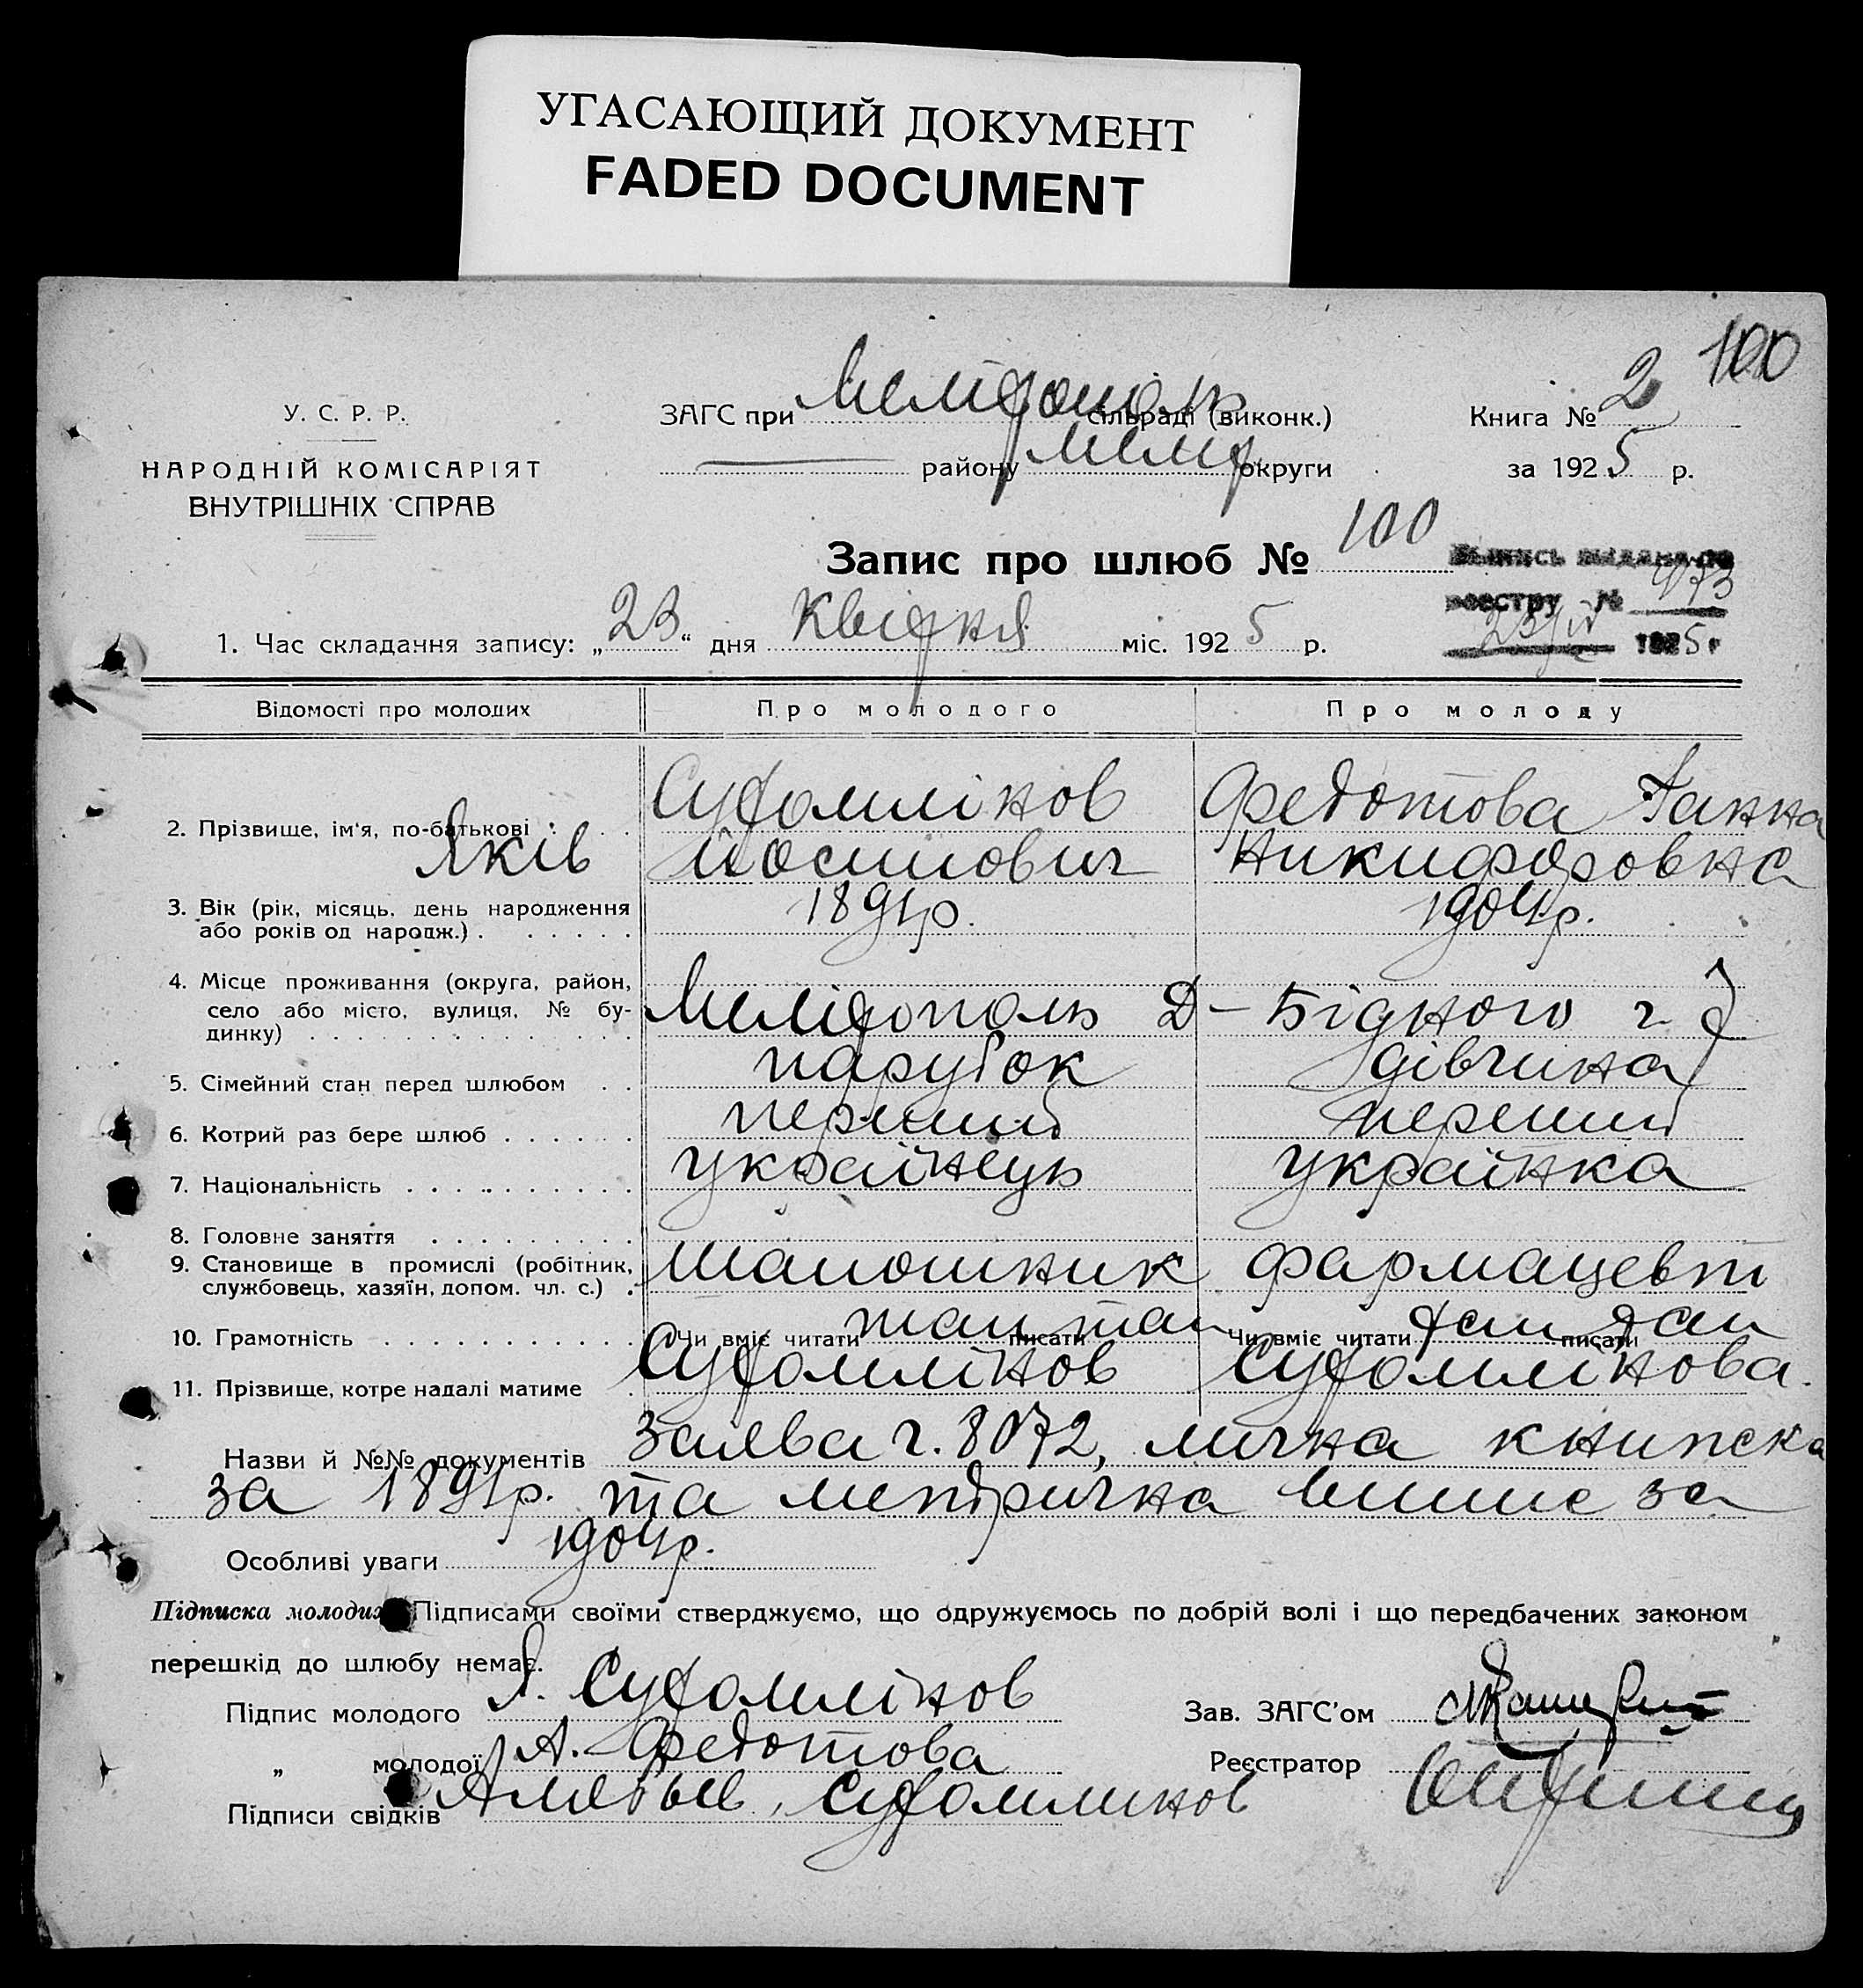 УГАСАЮЩИЙ ДОКУМЕНТ
FADED DOCUMENT
100
У. С. Р. Р.
НАРОДНІЙ КОМІСАРІЯТ
ВНУТРІШНІХ СПРАВ
ЗАГС при Мелітополь сільраді (виконк.)
району Меліт округи
Книга № 2
за 1925 р.
Запис про шлюб № 100
Выпись выдана по
реестру № 473
23/IV 1925 г
1. Час складання запису: „23“ дня Квітня міс. 1925 р.
Відомості про молодих Про молодого Про молоду
2. Прізвище, ім'я, по-батькові Сухомлінов Федотова Ганна
Яків Йосипович Никифоровна
3. Вік (рік, місяць, день народження 1891р. 1904р.
або років од народж.)
4. Місце проживання (округа, район,
село або місто, вулиця, № бу-
динку) Мелітополь Д-Бідного ч.
5. Сімейний стан перед шлюбом парубок дівчина
6. Котрий раз бере шлюб перший перший
7. Національність українець українка
8. Головне заняття
9. Становище в промислі (робітник,
службовець, хазяїн, допом. чл. с.) шапошник фармацевт
10. Грамотність Чи вміє читати так писати так Чи вміє читати так писати так
11. Прізвище, котре надалі матиме Сухомлінов Сухомлінова.
Назви й №№ документів Заява ч. 8072, лична книжка
за 1891р. та метрична випис за
1904р.
Особливі уваги
Підписка молодих Підписами своїми стверджуємо, що одружуємось по добрій волі і що передбачених законом
перешкід до шлюбу немає.
Підпис молодого Я. Сухомлінов
Зав. ЗАГС'ом
„ молодої А. Федотова
Реєстратор
Підписи свідків Сухомлинов